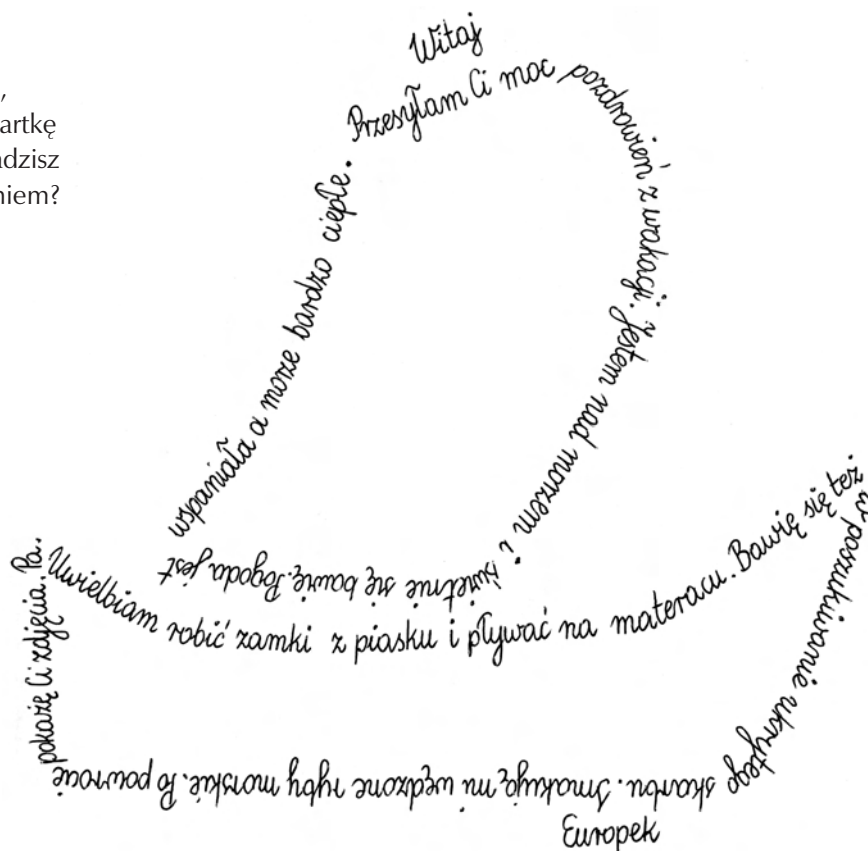 ,
artkę
adzisz
niem?
Witaj
Przesyłam Ci moc pozdrowień z wakacji. Jestem nad morzem i świetnie się bawię. Pogoda jest wspaniała a morze bardzo ciepłe.
Uwielbiam robić zamki z piasku i pływać na materacu. Bawię się też w poszukiwanie ukrytego skarbu. Smakują mi wędzone ryby morskie. Po powrocie pokażę Ci zdjęcia. Pa.
Europek